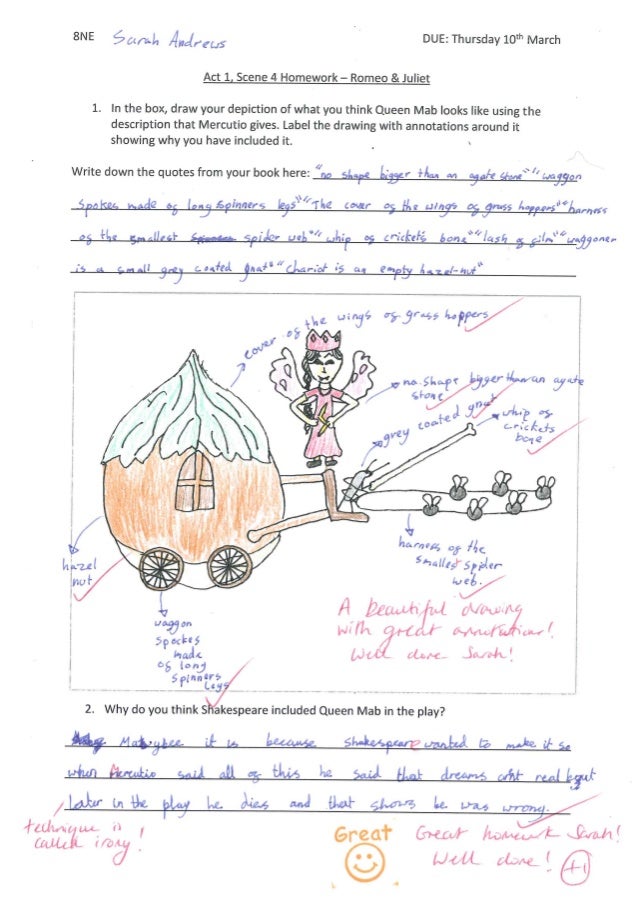 8NE Sarah Andrews DUE: Thursday 10th March
Act 1, Scene 4 Homework – Romeo & Juliet
1. In the box, draw your depiction of what you think Queen Mab looks like using the
description that Mercutio gives. Label the drawing with annotations around it
showing why you have included it.
Write down the quotes from your book here: "no shape bigger than an agate stone" "waggon
spokes made of long spinners legs" "The cover of the wings of grass hoppers" "harness
of the smallest spider web" "whip of crickets bone" "lash of film" "waggoner
is a small grey coated gnat" "chariot is an empty hazel-nut"
cover of the wings of grass hoppers
no shape bigger than an agate
stone
grey coated gnat
whip of
crickets
bone
harness of the
smallest spider
web.
hazel
nut
waggon
spockes
made
of long
spinners
legs
A beautiful drawing
with great annotations!
Well done Sarah!
2. Why do you think Shakespeare included Queen Mab in the play?
Maybyee it is because Shakespeare wanted to make it so
when Mercutio said all of this he said that dreams arnt real but
Later in the play he dies and that shows he was wrong.
technique is
called irony!
Great
Great homework Sarah!
Well done! +1